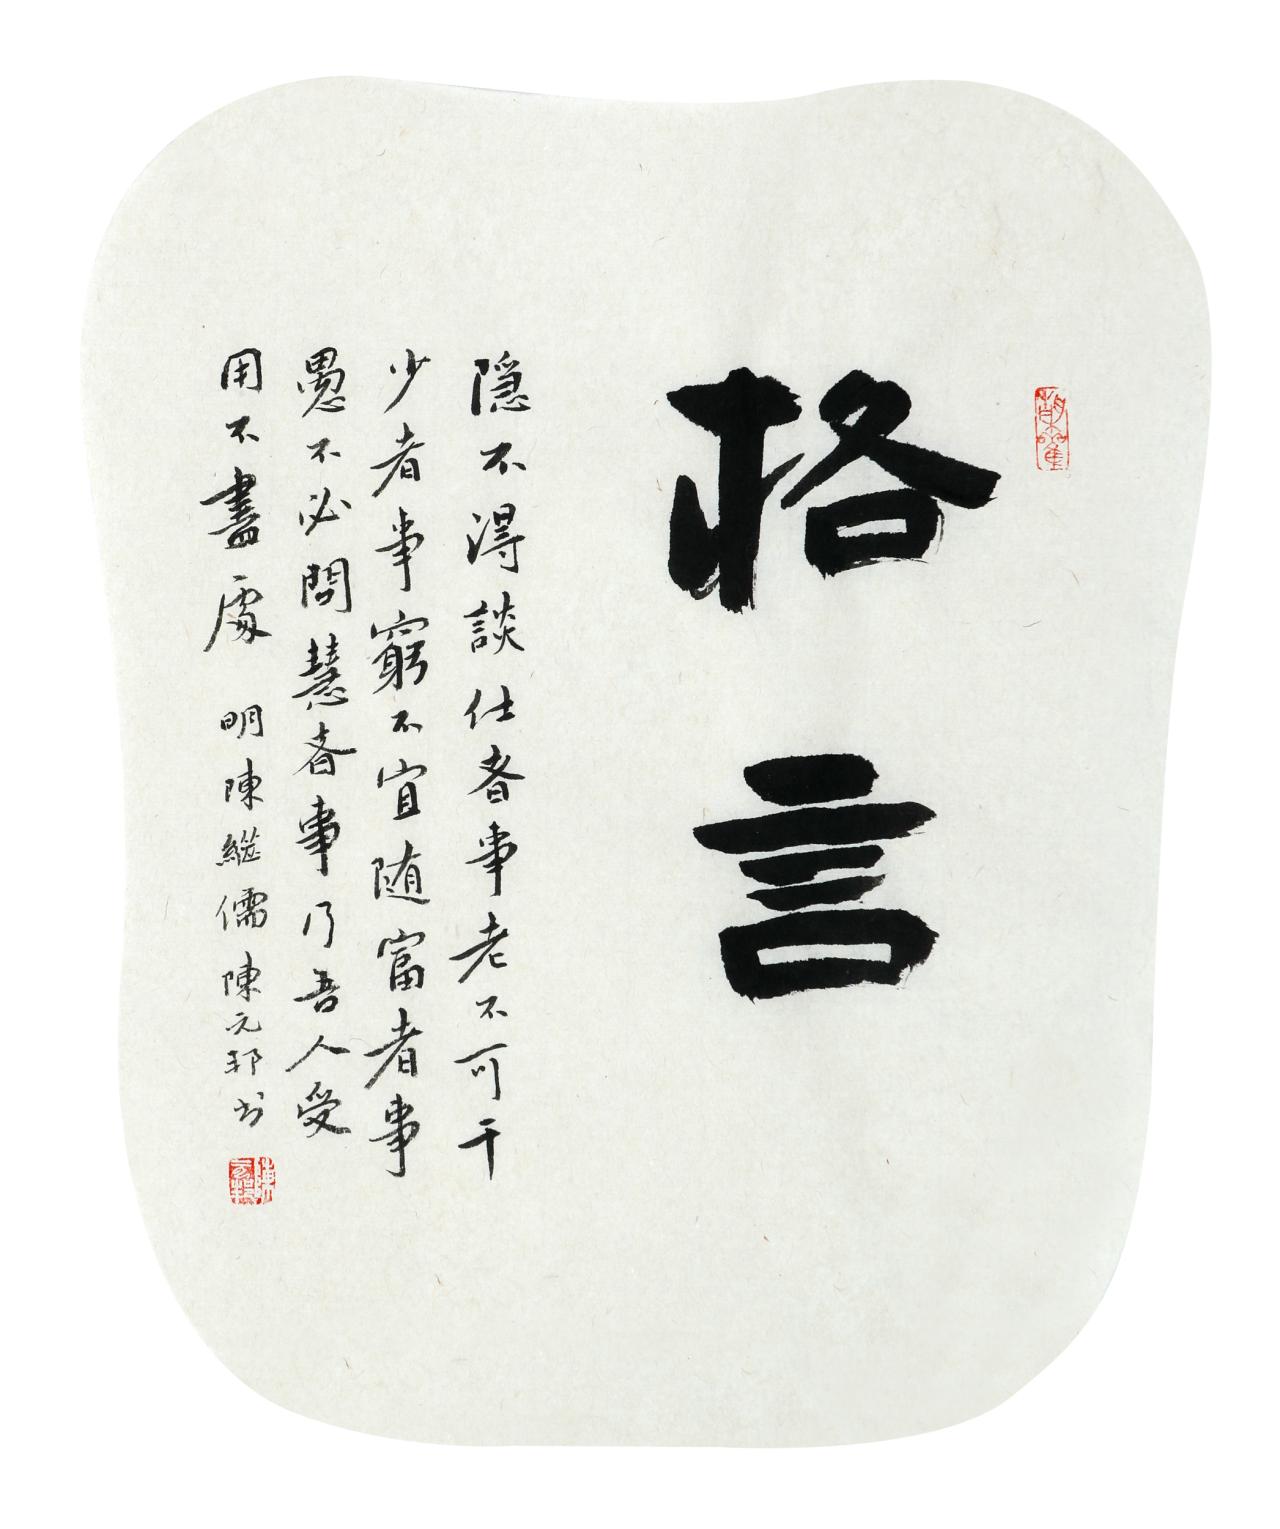 格言
隐不得談仕者事老不可干
少者事窮不宜随富者事
愚不必問慧者事乃吾人受
用不盡處 明陳繼儒 陳元邦书